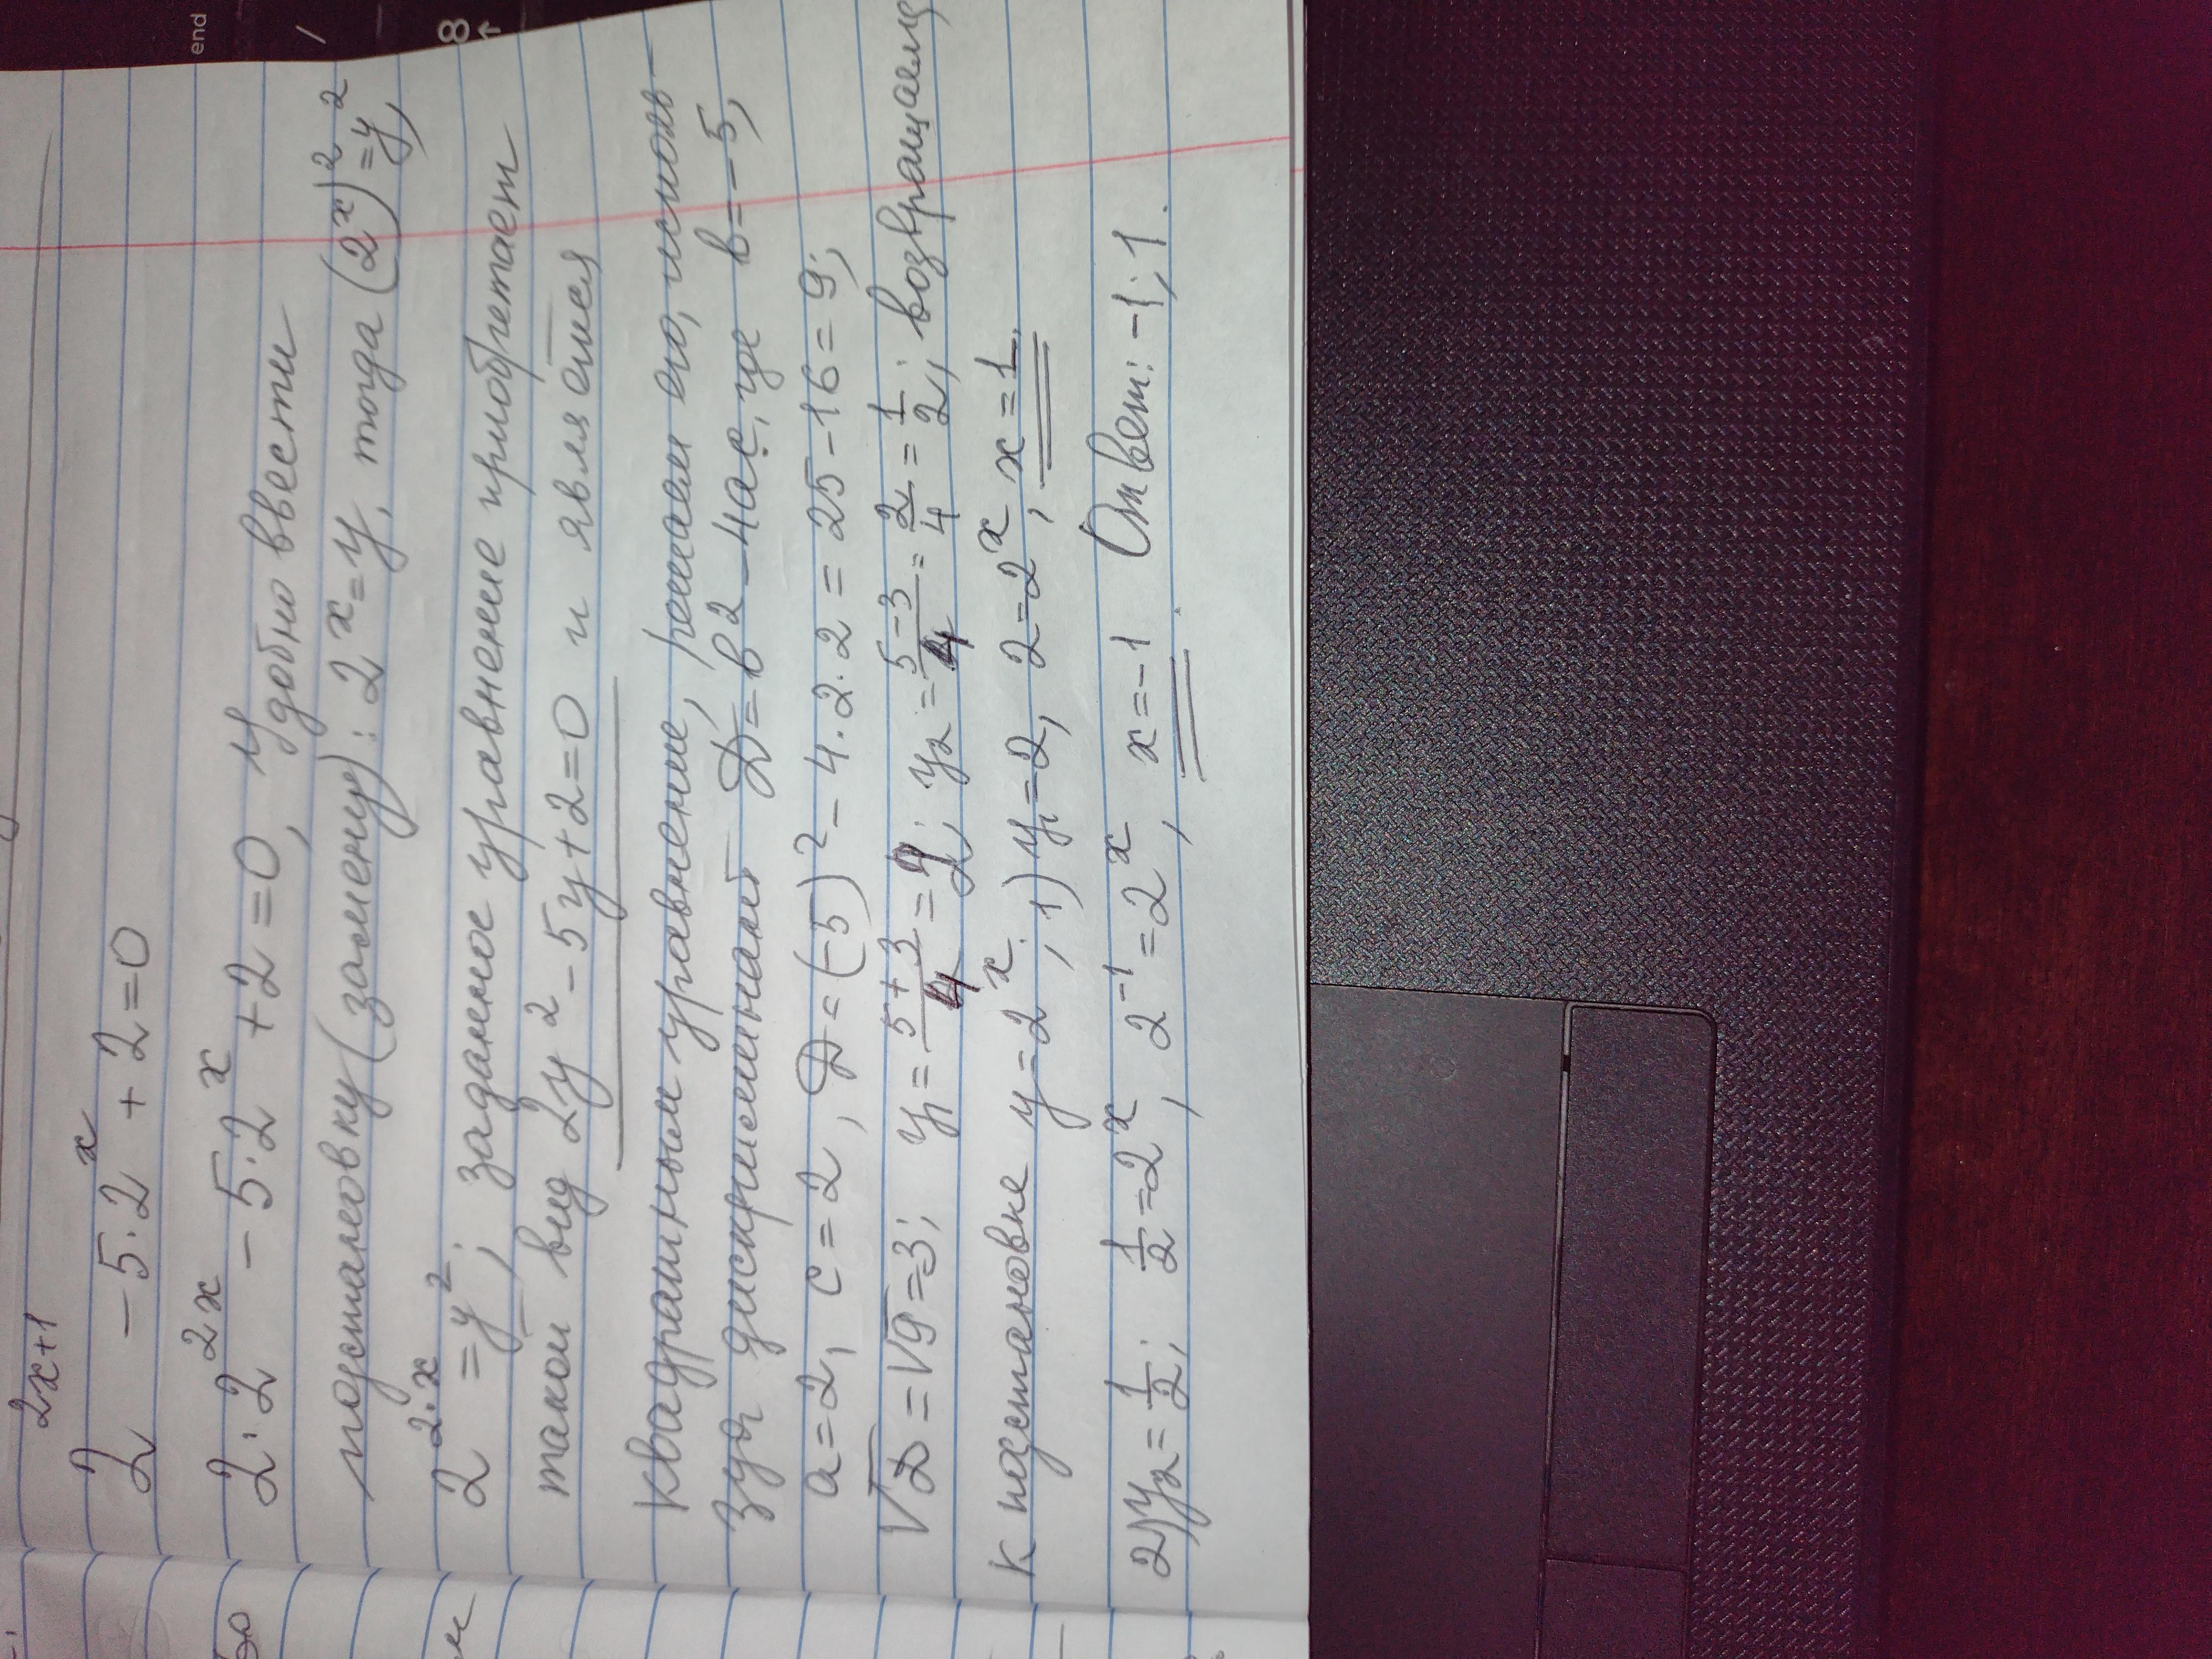 2^{2x+1} - 5·2^x + 2 = 0
2·2^{2x} - 5·2^x + 2 = 0, удобно ввести
подстановку (замену): 2^x = y, тогда (2^x)^2 = y^2,
2^{2·x} = y^2; заданное уравнение приобретает
такой вид 2y^2 - 5y + 2 = 0 и является
квадратным уравнение, решаем его, исполь-
зуя дискриминант D = в^2 - 4ас, где в = -5,
a = 2, c = 2, D = (-5)^2 - 4·2·2 = 25 - 16 = 9;
√D = √9 = 3; y₁ = (5+3)/4 = 2; y₂ = (5-3)/4 = 2/4 = 1/2; возвращаемся
к подстановке y = 2^x, 1) y₁ = 2, 2 = 2^x, x = 1,
2) y₂ = 1/2; 1/2 = 2^x, 2^{-1} = 2^x, x = -1 Ответ: -1; 1.
end
/
8
↑